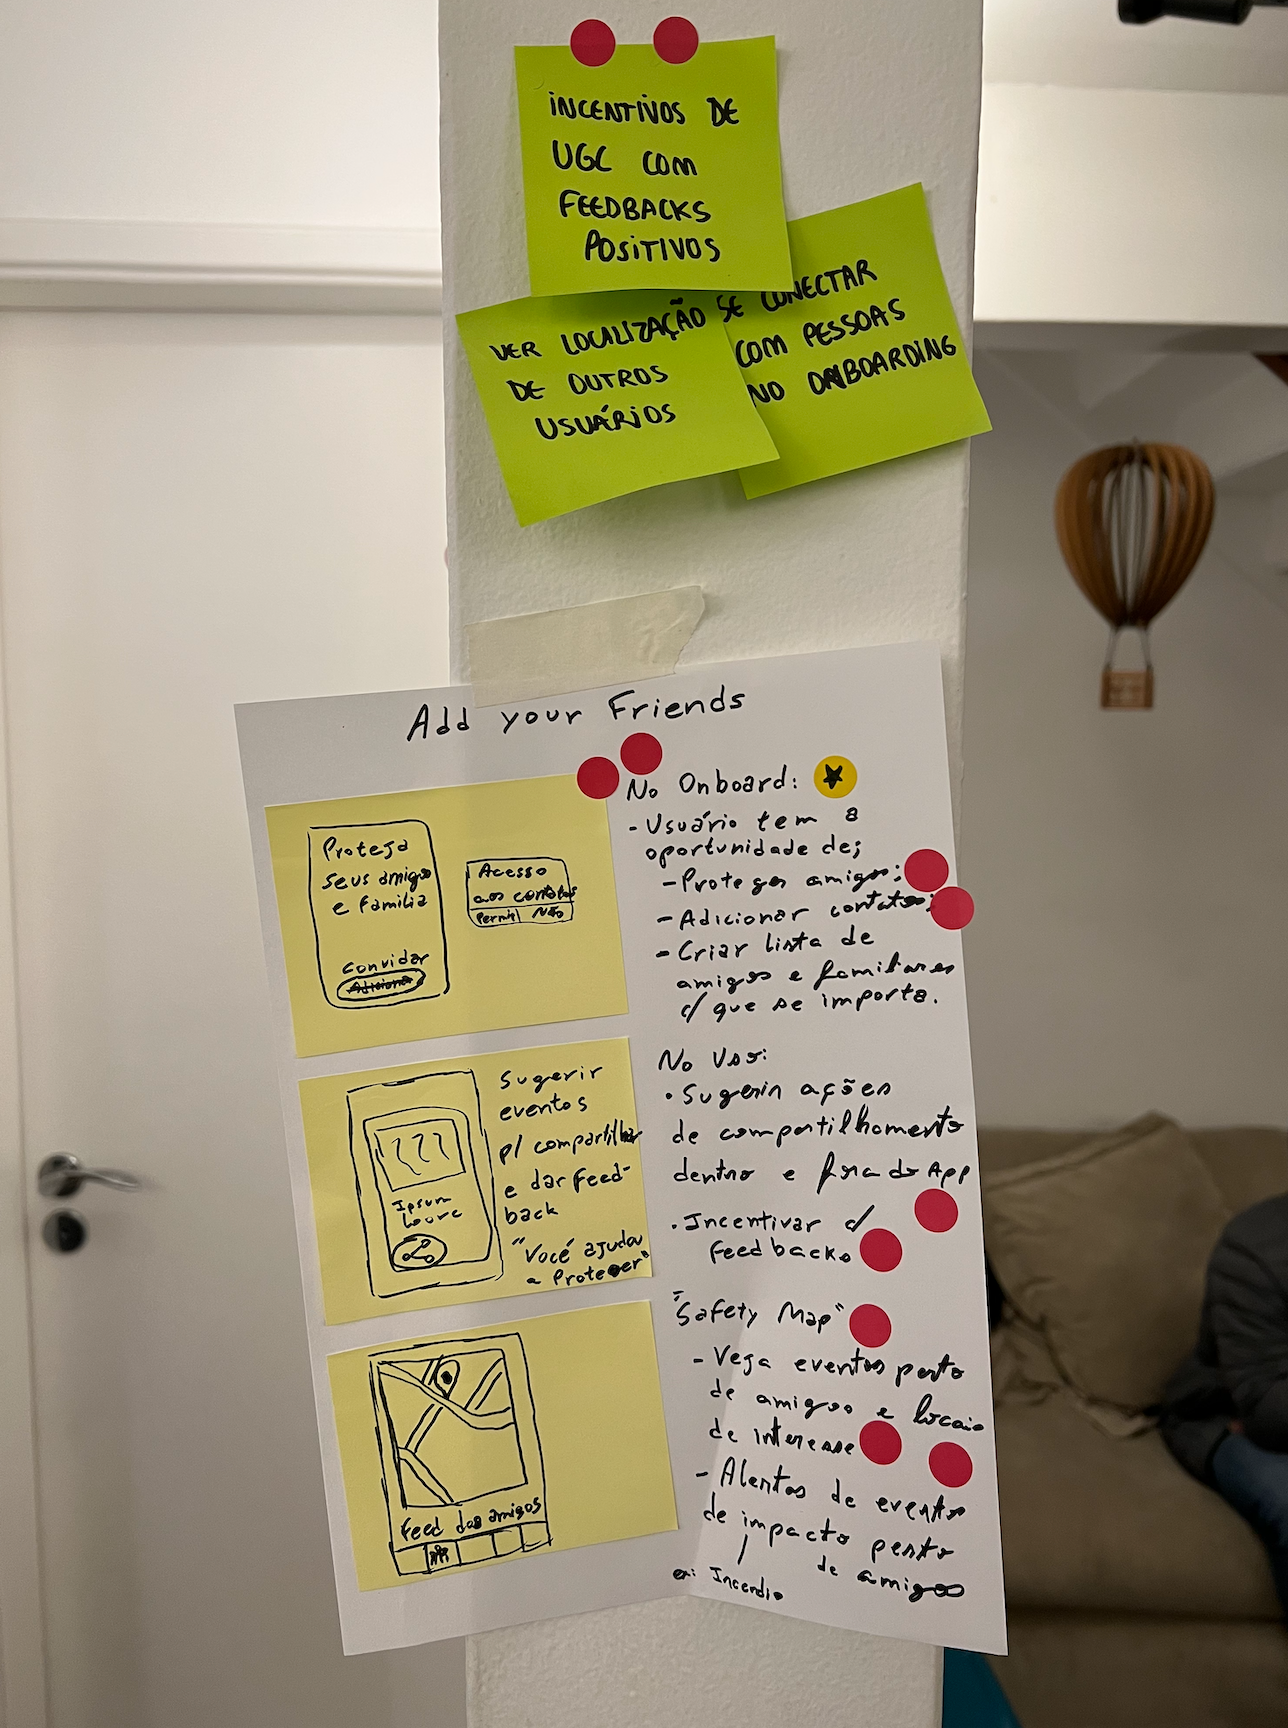 INCENTIVOS DE
UGC COM
FEEDBACKS
POSITIVOS
VER LOCALIZAÇÃO
DE OUTROS
USUÁRIOS
SE CONECTAR
COM PESSOAS
NO ONBOARDING
Add your Friends
Proteja
seus amigos
e familia
Convidar
Adicionar
Acesso
aos contatos
Permit Não
No Onboard:
- Usuário tem a
oportunidade de;
- Proteger amigos;
- Adicionar contatos;
- Criar lista de
amigos e familiares
c/ que se importa.
Ipsum
Sugerir
eventos
p/ compartilhar
e dar feed-
back
"Você ajudou
a Proteger"
No Uso:
• Sugerir ações
de compartilhamento
dentro e fora do App
• Incentivar c/
Feedbacks
Feed dos amigos
"Safety Map"
- Veja eventos perto
de amigos e locais
de interesse
- Alertas de eventos
de impacto perto
de amigos
ex: Incendio